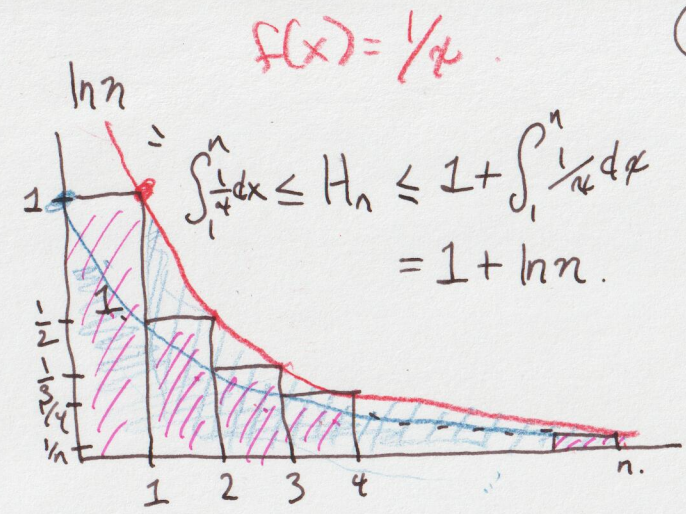 f(x) = 1/x.
ln n
=
∫₁ⁿ 1/x dx ≤ Hₙ ≤ 1 + ∫₁ⁿ 1/x dx
= 1 + ln n.
1
1.
1/2
1/3
1/4
1/n
1 2 3 4 n.